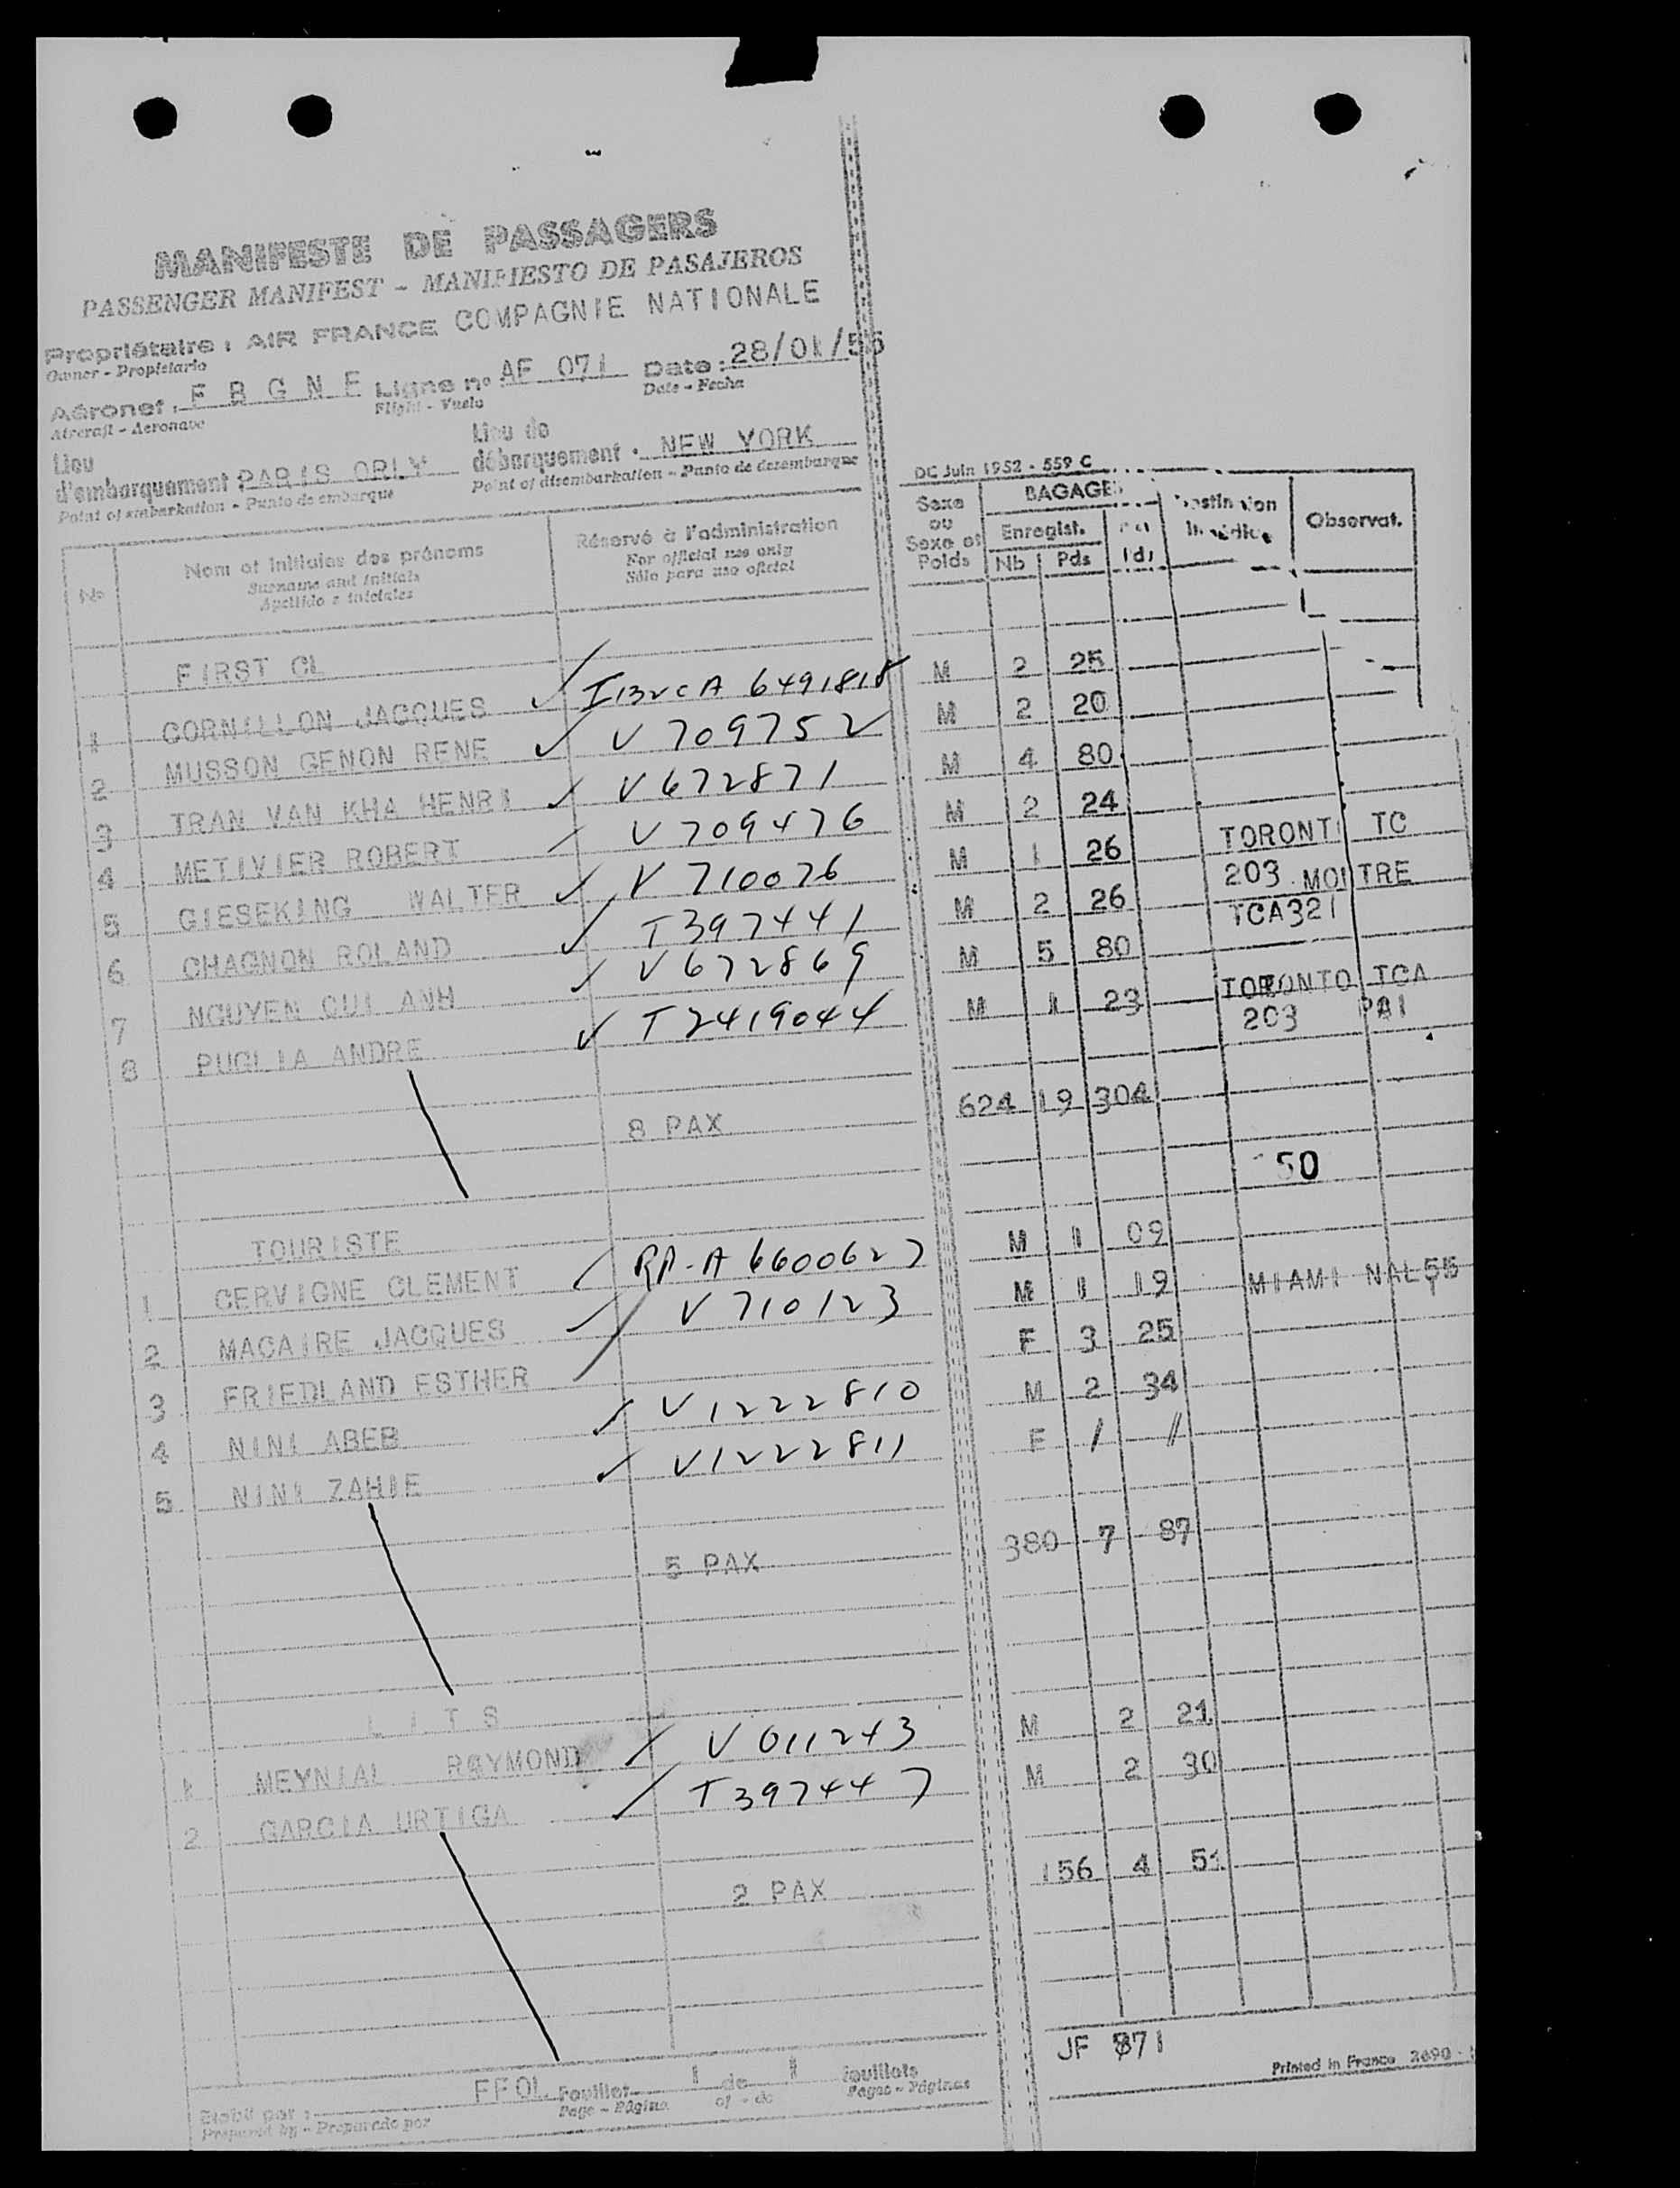 MANIFESTE DE PASSAGERS
PASSENGER MANIFEST - MANIFIESTO DE PASAJEROS
Propriétaire : AIR FRANCE COMPAGNIE NATIONALE
Owner - Propietario
Aéronef : F B G N E Ligne n° AF 071 Date : 28/01/55
Aircraft - Aeronave Flight - Vuelo Date - Fecha
Lieu d'embarquement : PARIS ORLY Lieu de débarquement : NEW YORK
Point of embarkation - Punto de embarque Point of disembarkation - Punto de desembarque
DC Juin 1952 - 559 C
No Nom et initiales des prénoms Réservé à l'administration Sexe ou Sexe et Poids BAGAGES Observat.
Surname and initials For official use only Enregist.
Apellido e iniciales Sólo para uso oficial Nb Pds
FIRST CL
1 CORNILLON JACQUES A 6491818 M 2 25
2 MUSSON GENON RENE V 709752 M 2 20
3 TRAN VAN KHA HENRI V 672871 M 4 80
4 METIVIER ROBERT V 709476 M 2 24
5 GIESEKING WALTER V 710076 M 1 26 TORONT TC
203 MONTRE
6 CHAGNON ROLAND T 397441 M 2 26 TCA321
7 NGUYEN QUI ANH V 672869 M 5 80
8 PUGLIA ANDRE T 2419044 M 1 23 TORONTO TCA
203
8 PAX 624 19 304
50
TOURISTE
1 CERVIGNE CLEMENT A 6600627 M 1 09
2 MACAIRE JACQUES V 710123 M 1 19 MIAMI NAL
3 FRIEDLAND ESTHER F 3 25
4 NINI ABEB V 1222810 M 2 34
5 NINI ZAHIE V 1222811 F / //
5 PAX 380 7 87
L I T S
1 MEYNIAL RAYMOND V 011243 M 2 21
2 GARCIA URTIGA T 397447 M 2 30
2 PAX 156 4 51
JF 871
Printed in France
Etabli par : FFOL Feuillet 1 de 1 feuillets
Prepared by - Preparado por Page - Página of - de Pages - Páginas